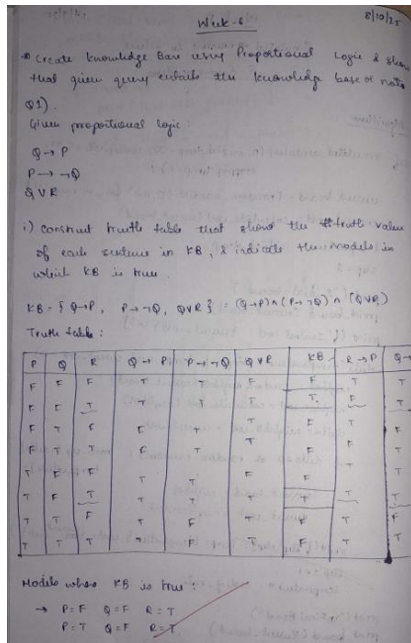 Week-6
8/10/25
Create knowledge Base using Propositional Logic & show
that given query entails the knowledge base or not.
Q1)
Given propositional logic:
Q → P
P → ¬Q
Q V R
i) Construct truth table that shows the truth value
of each sentence in KB, & indicate the models in
which KB is true.
KB = { Q→P, P→¬Q, QVR } = (Q→P)∩(P→¬Q)∩(QVR)
Truth table:
P Q R Q→P P→¬Q QVR KB R→P Q→
F F F T T F F T T
F F T T T T T F T
F T F F T T F T F
F T T F T T F F
T F F T T F F T
T F T T T T T T T
T T F T F T F T F
T T T T F T F T T
Models where KB is true:
→ P=F Q=F R=T
P=T Q=F R=T